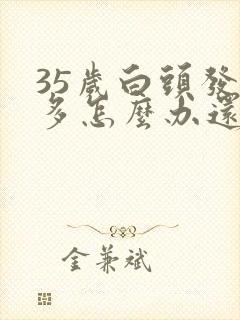 35歲白頭發
多怎麼办還
金兼斌